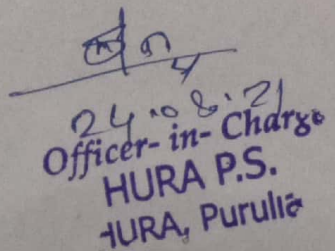 24.08.21
Officer- in- Charge
HURA P.S.
HURA, Purulia